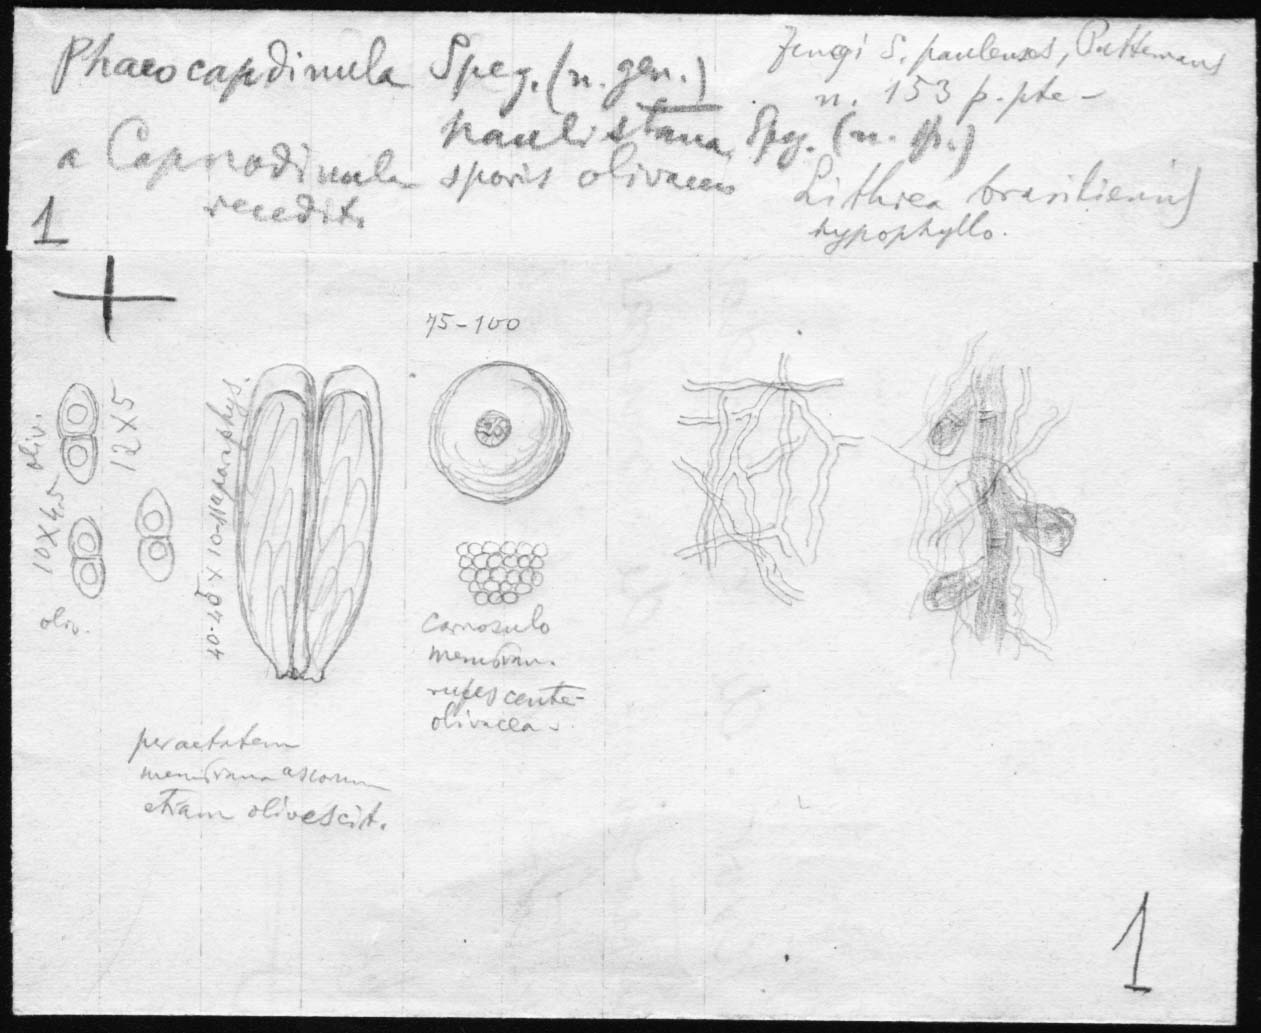 Phaeocapdinula Speg. (n. gen.)
paulistana Speg. (n. sp.)
a Capnodinula sporis olivaceis
recedit.
Fungi S. paulenses, Puttemans
n. 153 p. pte -
Lithrea brasiliensis
hypophyllo.
1
75-100
oliv.
10 X 4,5
12 X 5
oliv.
40-45 X 10-11 aparaphys.
26
carnosulo
membran.
rufescente-
olivacea.
per aetatem
membrana ascorum
etiam olivescit.
1